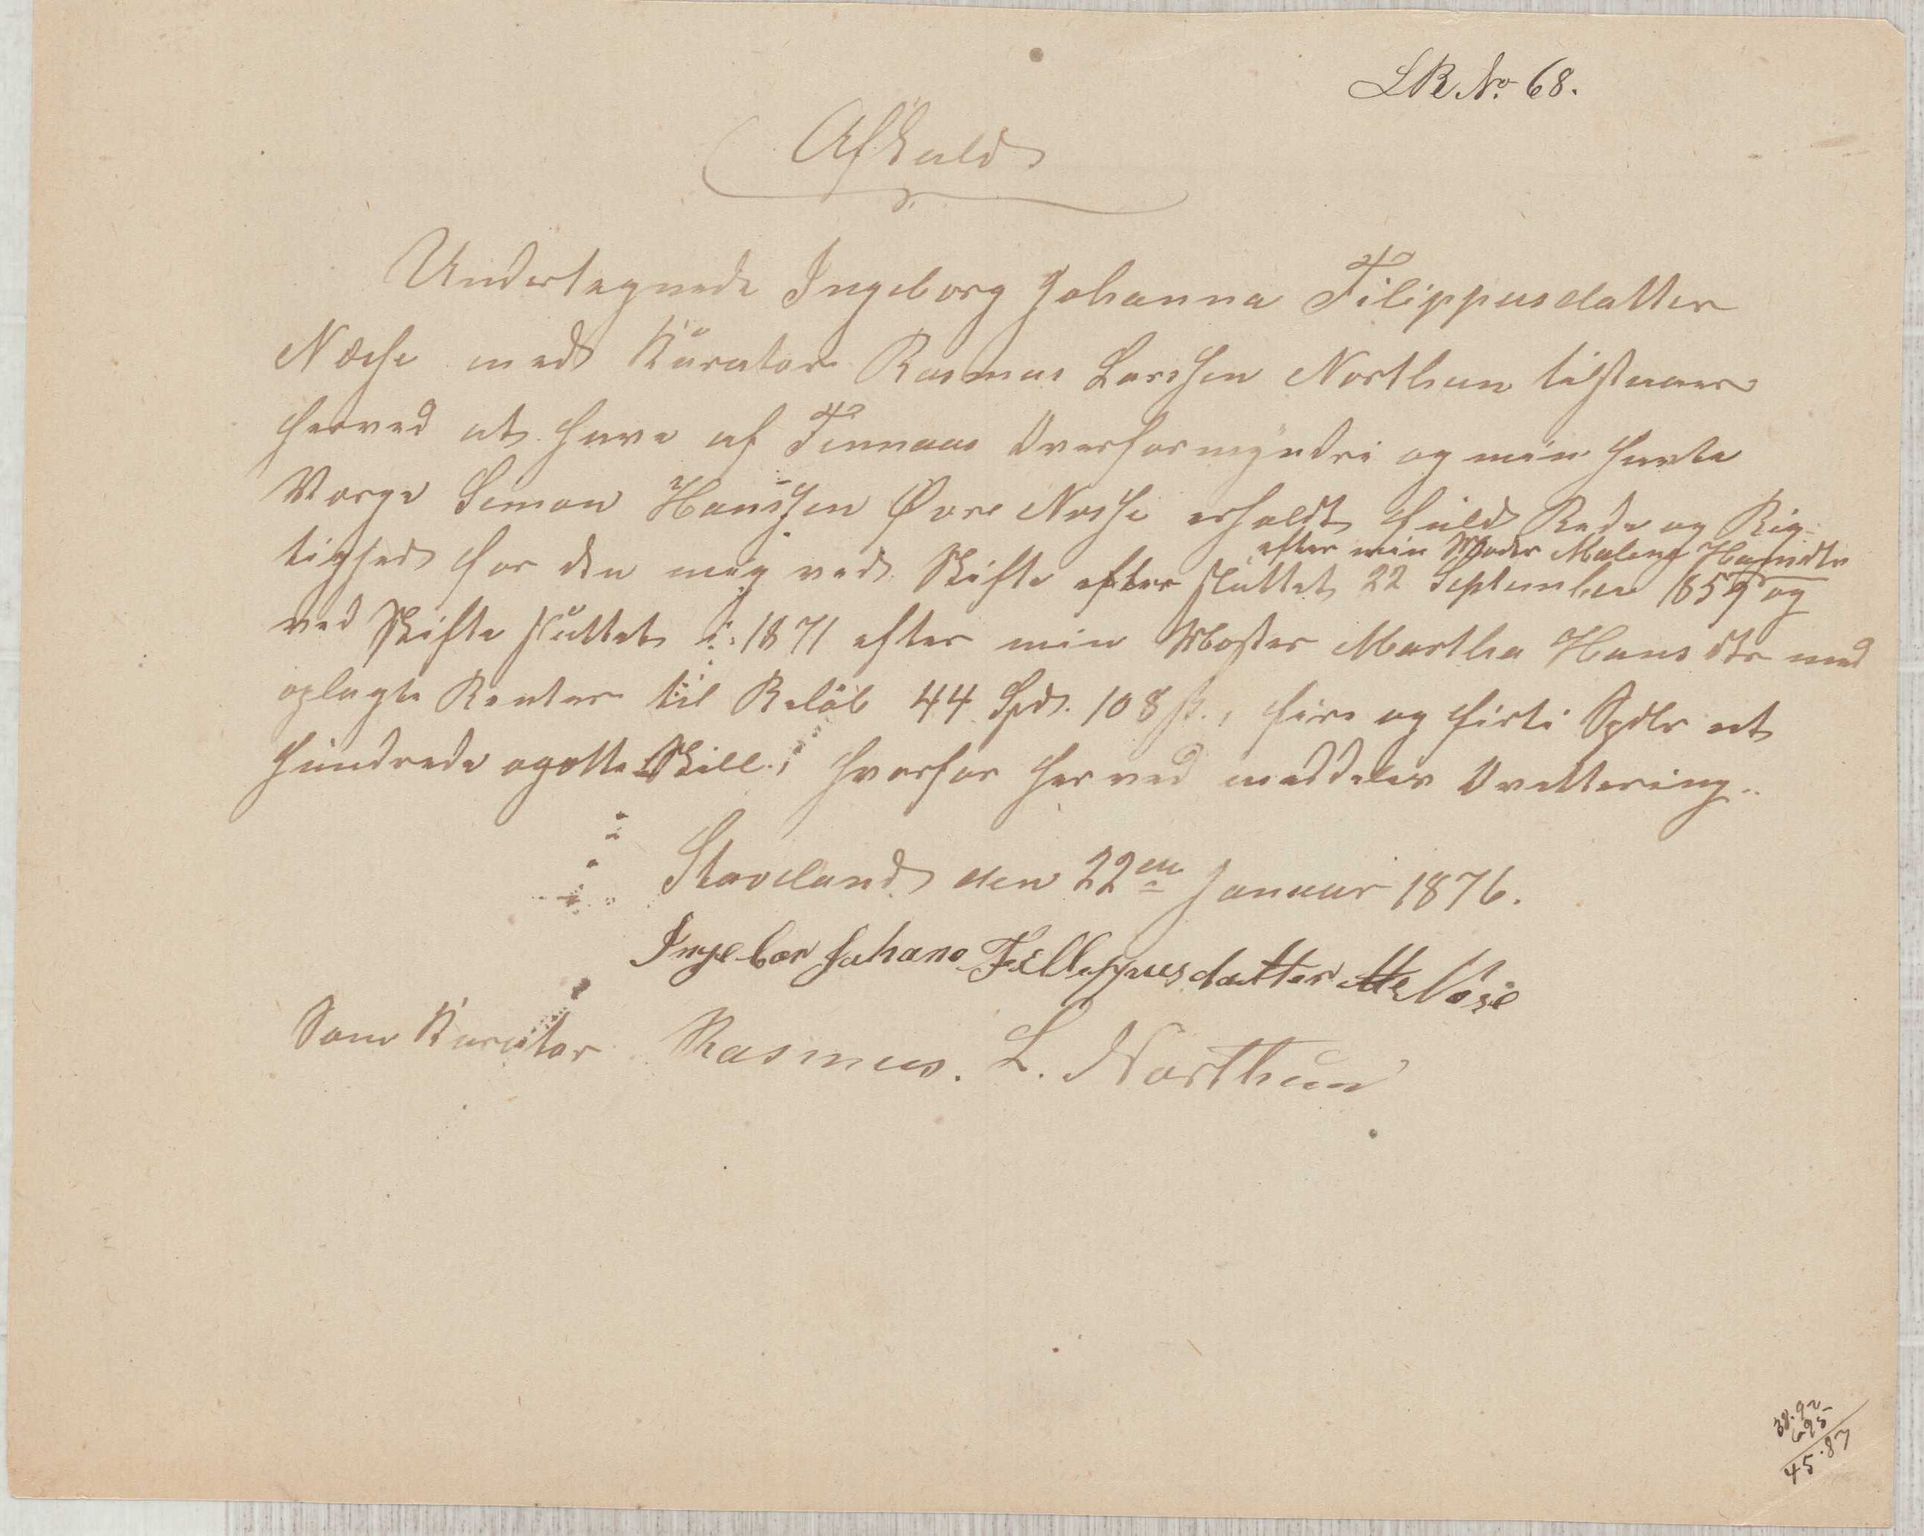 LR No. 68.
Afkald
Undertegnede Ingeborg Johanna Filippusdatter
Næsse med Kurator Rasmus Larssen Northun tilstaaer
herved at have af Finnaas Overformynderi og min havte
Værge Simon Hanssen Øvre Næsse erholdt fuld Rede og Rig-
efter min Moder Malene Hansdtr
tighed for den mig ved Skifte efter sluttet 22 September 1859 og
ved Skifte sluttet i 1871 efter min Moster Martha Hansdtr med
oplagte Renter til Beløb 44 Spd. 108 s., fire og firti Spdlr et
hundrede og otte Skill., hvorfor herved meddeles Qvittering.
Stavland den 22en Januar 1876.
Ingebor Johane Fillippusdatter Næse
Som Kurator Rasmus. L. Northun
38.92
695
45.87